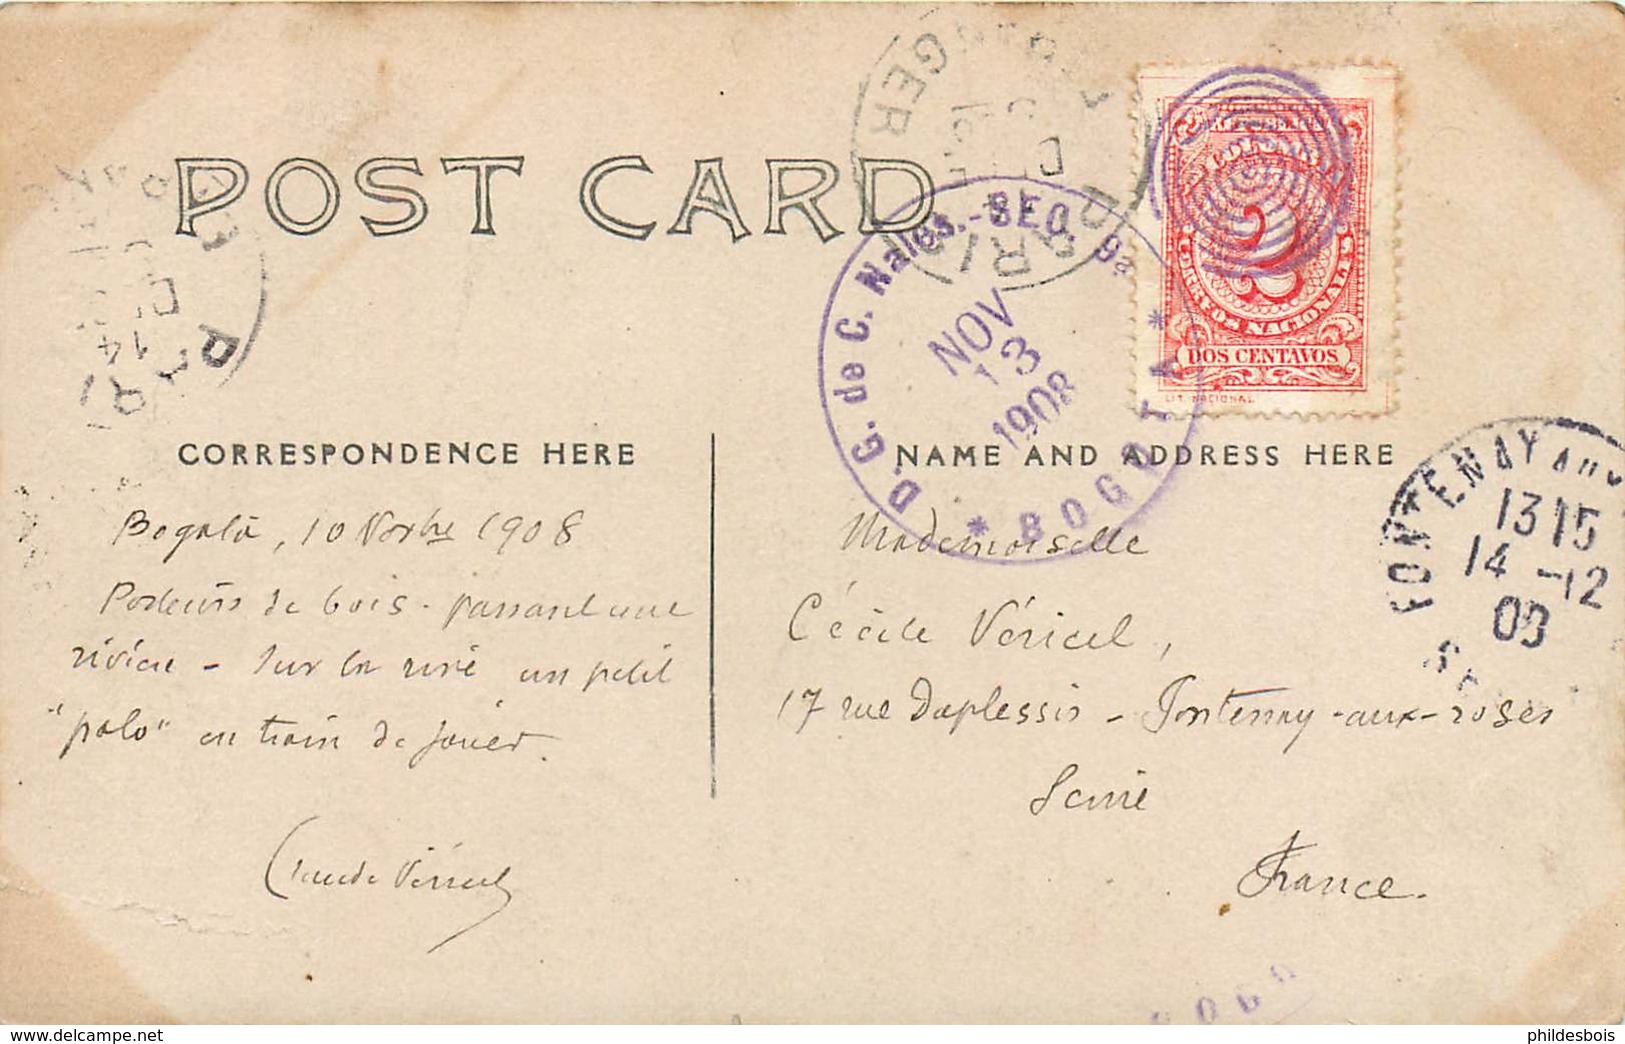 POST CARD
REPUBLICA DE
COLOMBIA
2
CORREOS NACIONALES
DOS CENTAVOS
LIT. NACIONAL
D. G. de C. Nales.-SEQ. 9a
* BOGOTA *
NOV
13
1908
PARIS
GER
PARI
14
FONTENAY AUX
13 15
14 -12
08
CORRESPONDENCE HERE
NAME AND ADDRESS HERE
Bogotá, 10 Novbre 1908
Porteurs de bois - passant une
rivière - Sur la rive un petit
"polo" en train de jouer.
Claude Véricel
Mademoiselle
Cécile Véricel,
17 rue Duplessis - Fontenay-aux-roses
Seine
France.
BOGO
phildesbois